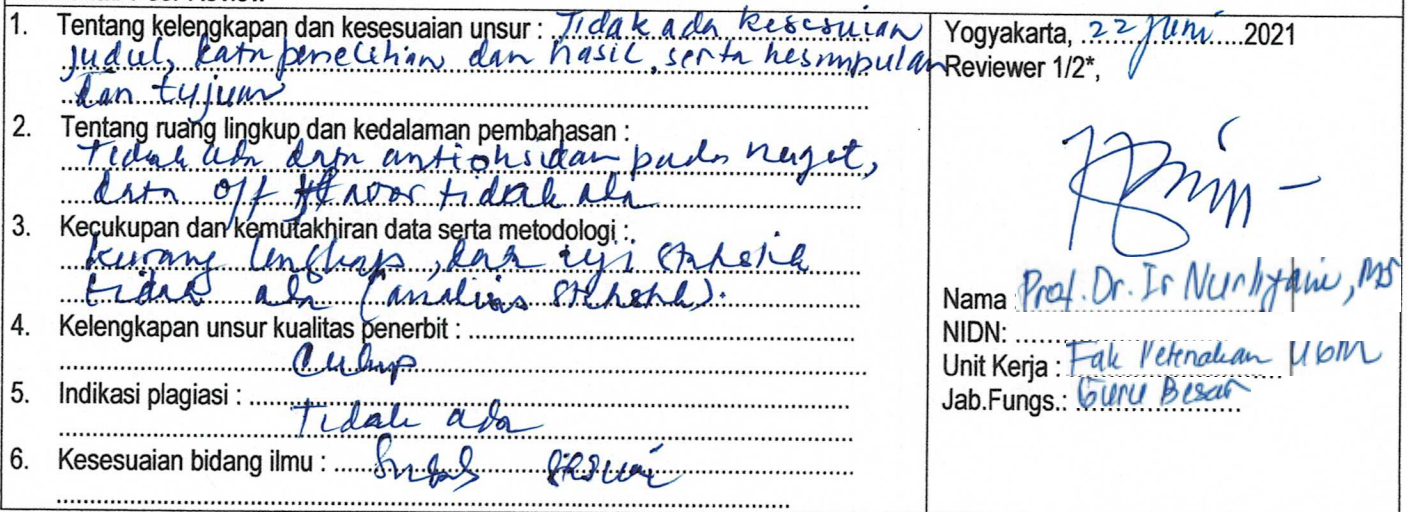 1. Tentang kelengkapan dan kesesuaian unsur : Tidak ada kesesuian
judul, data penelitian dan hasil, serta kesimpulan
dan tujuan
2. Tentang ruang lingkup dan kedalaman pembahasan :
Tidak ada data antioksidan pada nuget,
data off flavor tidak ada
3. Kecukupan dan kemutakhiran data serta metodologi :
kurang lengkap, dan uji statistik
tidak ada (analisis statistik).
4. Kelengkapan unsur kualitas penerbit :
Cukup
5. Indikasi plagiasi :
Tidak ada
6. Kesesuaian bidang ilmu : sesuai
Yogyakarta, 22 Juni 2021
Reviewer 1/2*,
Nama : Prof. Dr. Ir Nurliyani, MS
NIDN:
Unit Kerja : Fak Peternakan UGM
Jab.Fungs.: Guru Besar